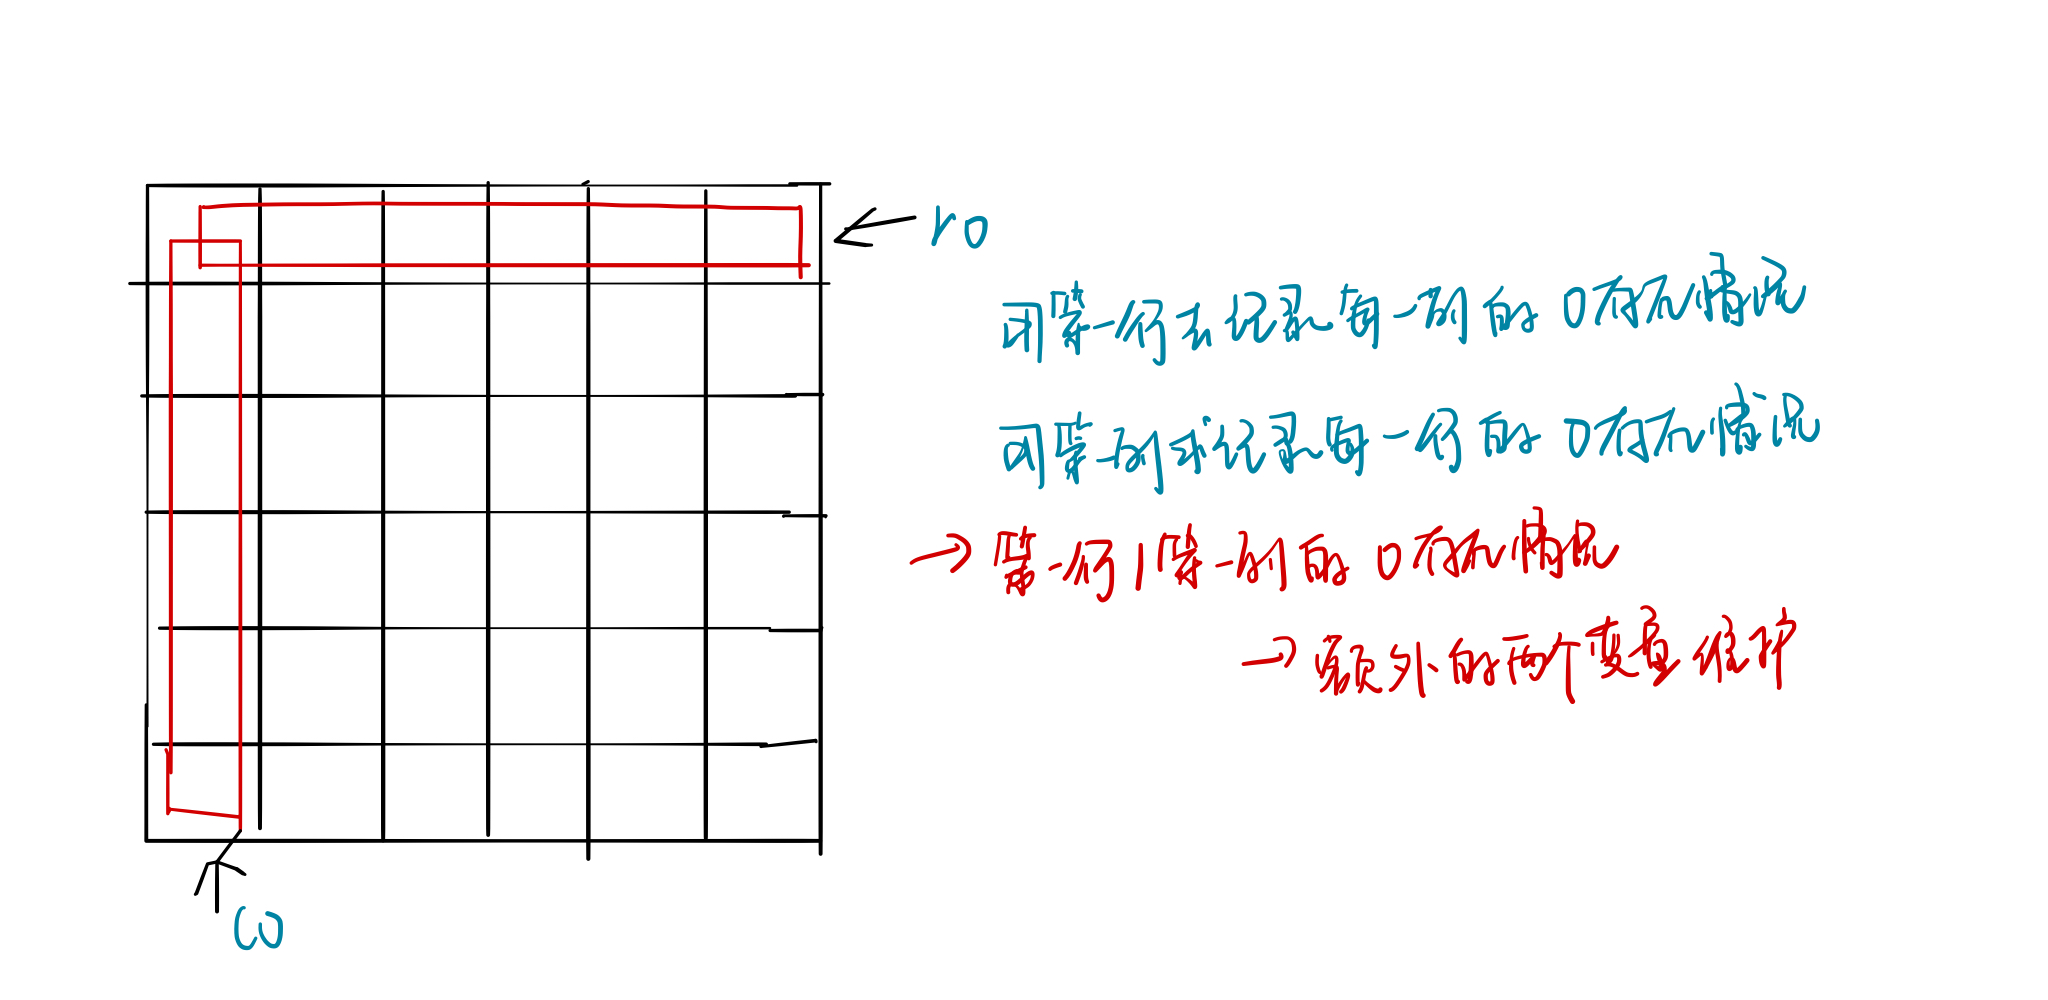 r0
用第一行去记录每一列的 0 存在情况
用第一列来记录每一行的 0 存在情况
→ 第一行 / 第一列的 0 存在情况
→ 额外的两个变量维护
c0